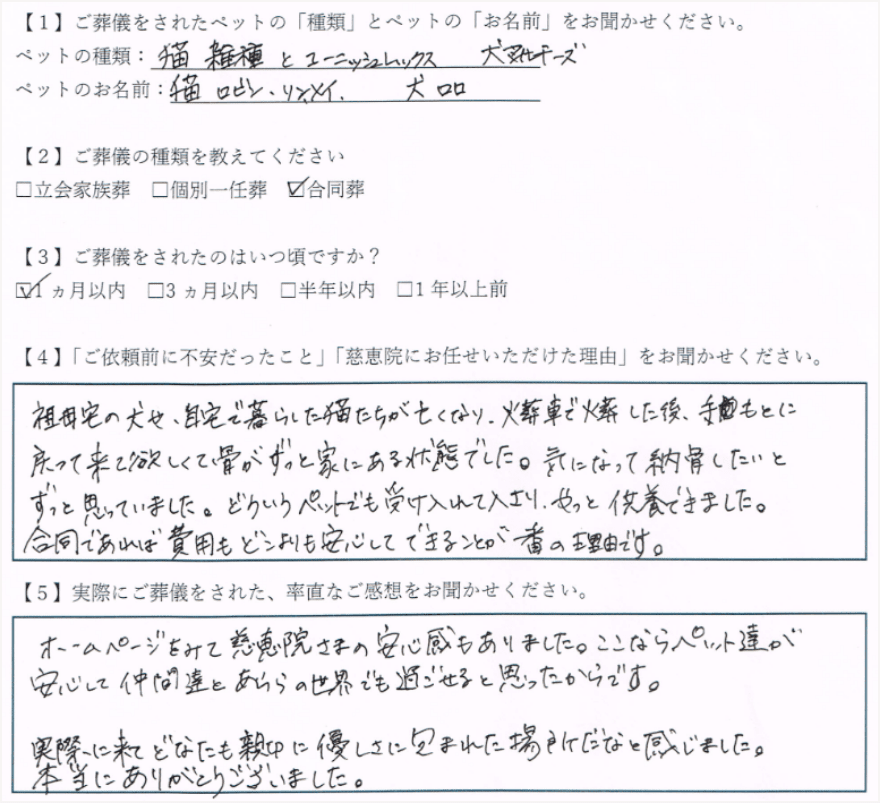 【1】ご葬儀をされたペットの「種類」とペットの「お名前」をお聞かせください。
ペットの種類：猫 雑種 と ユーニッシュレックス 犬 マルチーズ
ペットのお名前：猫 ロビン・リン、メイ、 犬 ロロ
【2】ご葬儀の種類を教えてください
□立会家族葬 □個別一任葬 ☑合同葬
【3】ご葬儀をされたのはいつ頃ですか？
☑1ヵ月以内 □3ヵ月以内 □半年以内 □1年以上前
【4】「ご依頼前に不安だったこと」「慈恵院にお任せいただけた理由」をお聞かせください。
祖母宅の犬や、自宅で暮らした猫たちが亡くなり、火葬車で火葬した後、手もとに
戻って来て欲しくて骨がずっと家にある状態でした。気になって納骨したいと
ずっと思っていました。どういうペットでも受け入れて下さり、やっと供養できました。
合同であれば費用もどこよりも安心してできることが一番の理由です。
【5】実際にご葬儀をされた、率直なご感想をお聞かせください。
ホームページをみて慈恵院さまの安心感もありました。ここならペット達が
安心して仲間達とあちらの世界でも過ごせると思ったからです。
実際に来てどなたも親切に優しさに包まれた場所だなと感じました。
本当にありがとうございました。